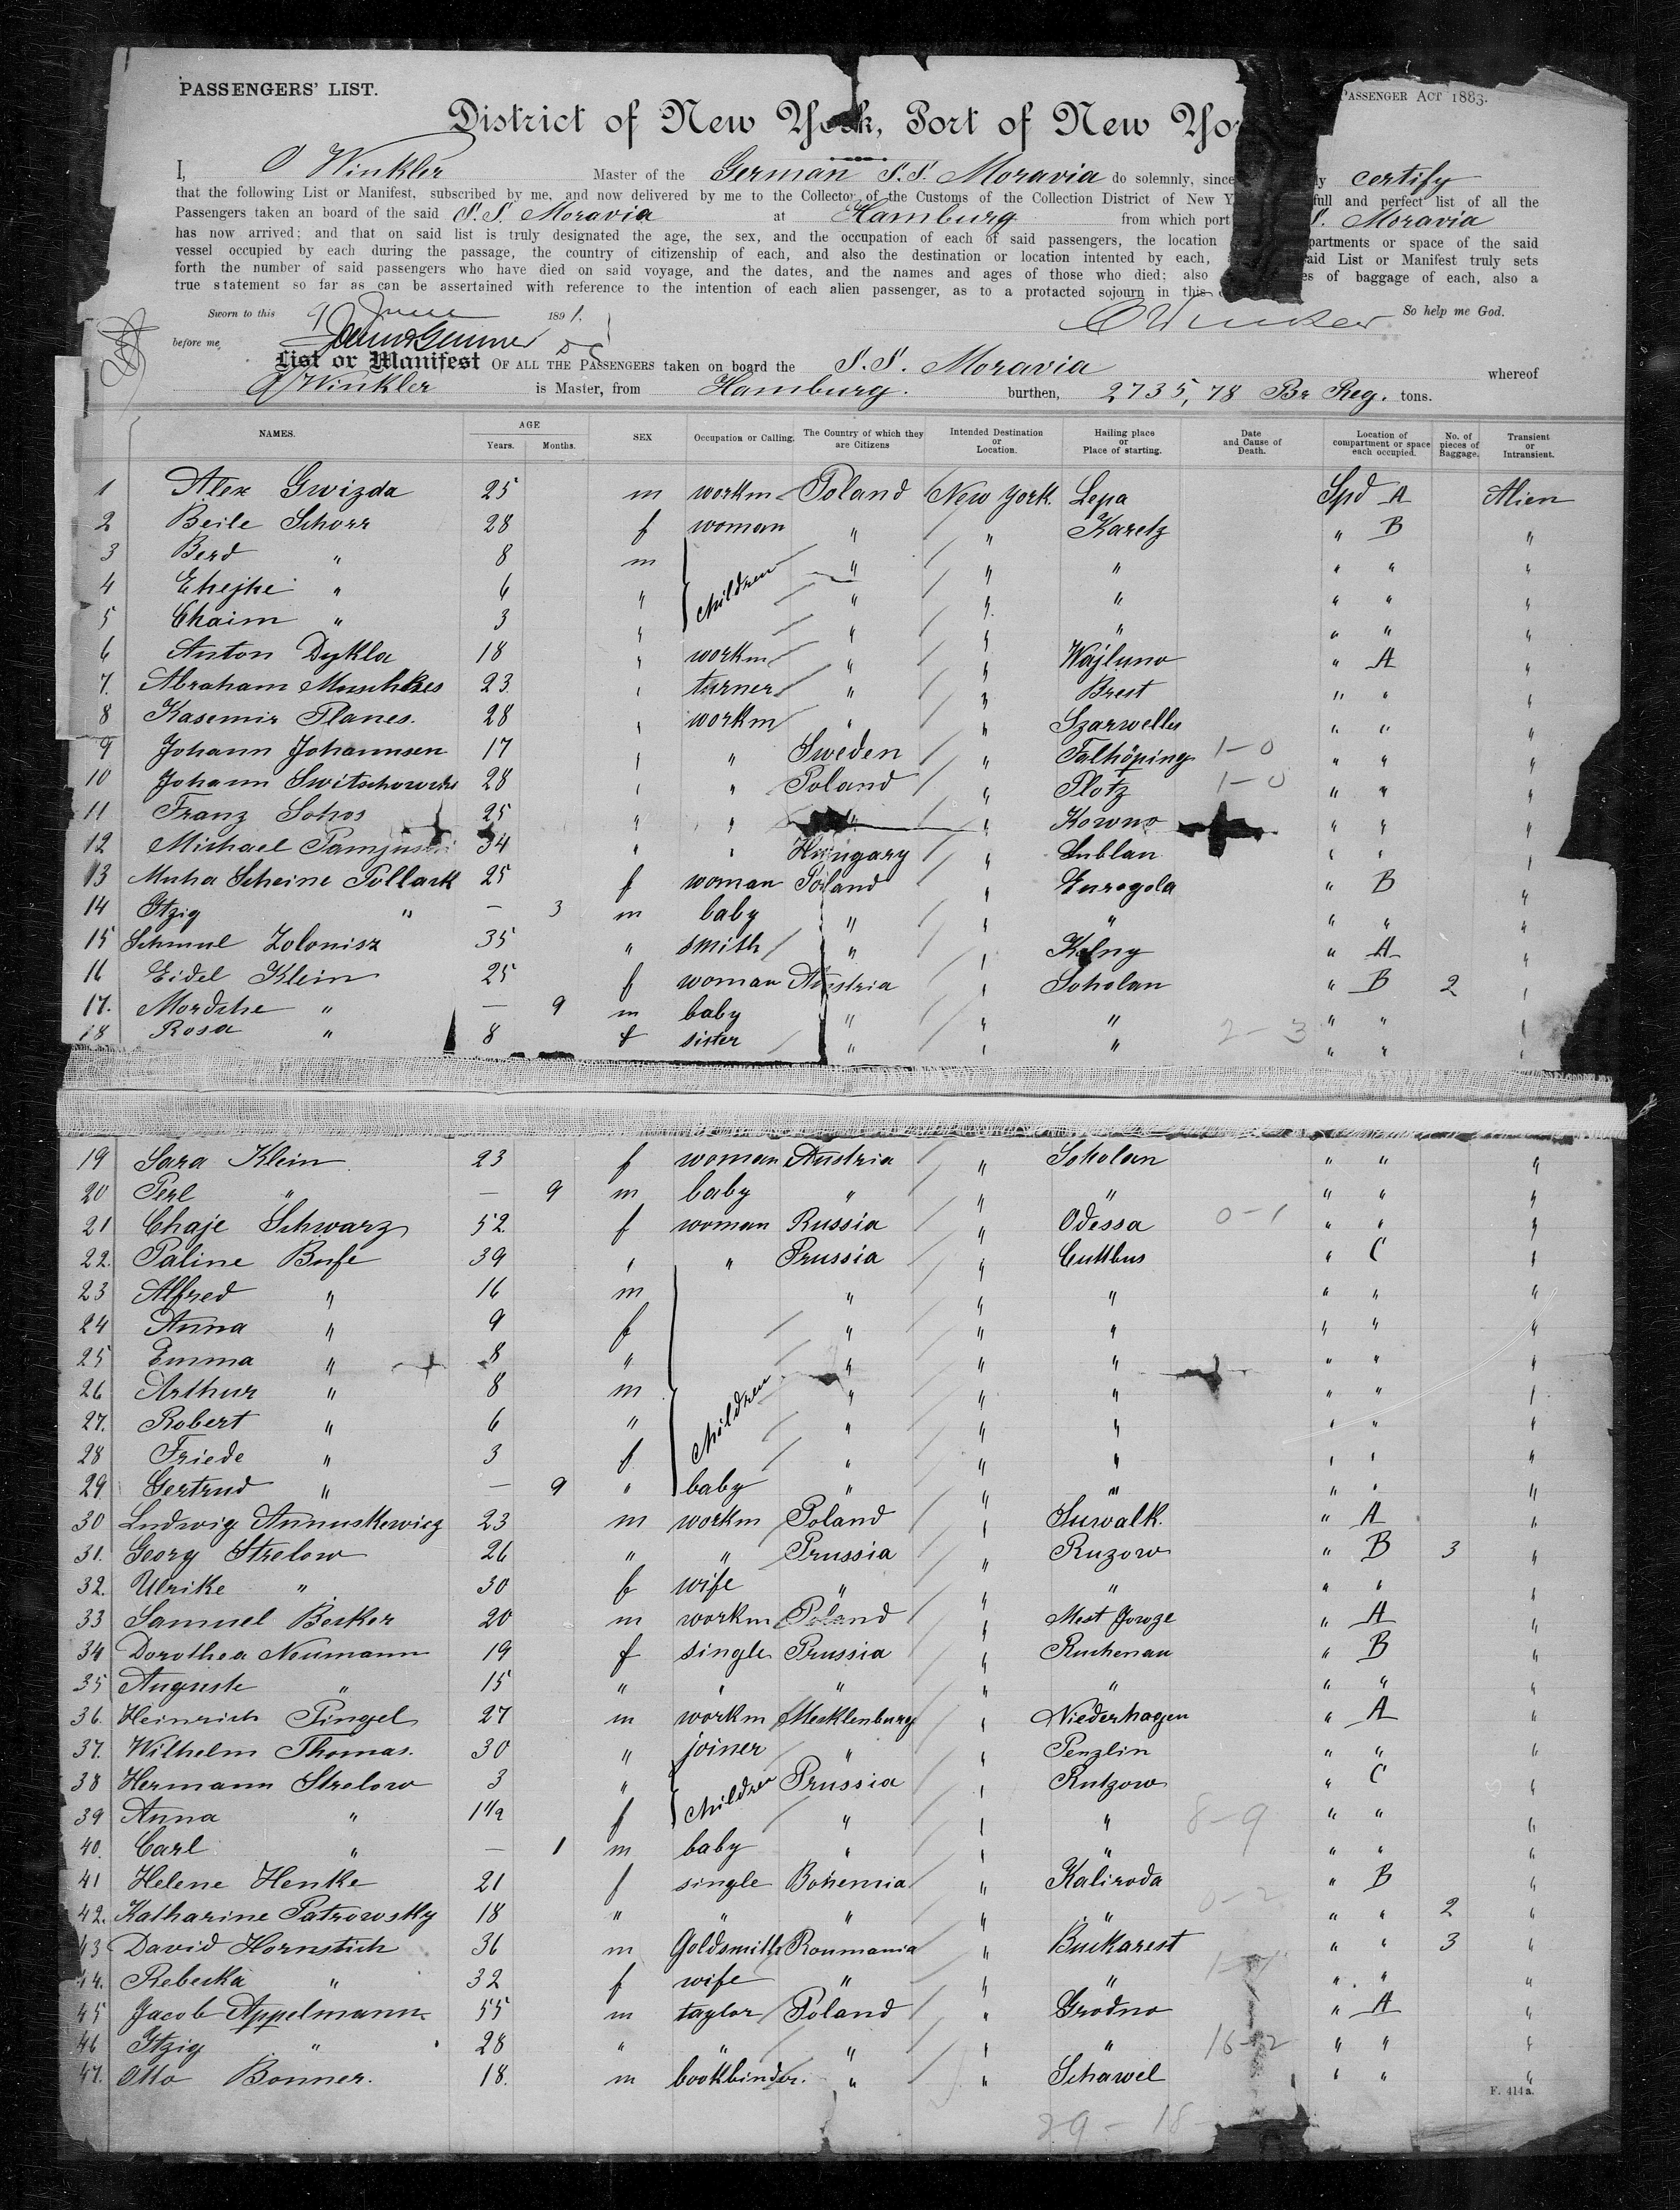 PASSENGERS' LIST.
PASSENGER ACT 1883.
District of New York, Port of New Yor
I, O Winkler Master of the German S.S. Moravia do solemnly, since ly certify
that the following List or Manifest, subscribed by me, and now delivered by me to the Collector of the Customs of the Collection District of New Y full and perfect list of all the
Passengers taken an board of the said S.S. Moravia at Hamburg from which port S. Moravia
has now arrived; and that on said list is truly designated the age, the sex, and the occupation of each of said passengers, the location partments or space of the said
vessel occupied by each during the passage, the country of citizenship of each, and also the destination or location intented by each, aid List or Manifest truly sets
forth the number of said passengers who have died on said voyage, and the dates, and the names and ages of those who died; also es of baggage of each, also a
true statement so far as can be assertained with reference to the intention of each alien passenger, as to a protacted sojourn in this
Sworn to this 9 June 1891. So help me God.
before me, O Winkler
List or Manifest OF ALL THE PASSENGERS taken on board the S.S. Moravia whereof
O Winkler is Master, from Hamburg. burthen, 2735,78 Br Reg. tons.
NAMES. AGE Years. Months. SEX Occupation or Calling. The Country of which they are Citizens Intended Destination or Location. Hailing place or Place of starting. Date and Cause of Death. Location of compartment or space each occupied. No. of pieces of Baggage. Transient or Intransient.
1 Alex Gwizda 25 m workm Poland New York Lepa Spd A Alien
2 Beile Schorr 28 f woman " " Karetz " B "
3 Berd " 8 m children " " " " " "
4 Ehejhe " 6 " " " " " " "
5 Chaim " 3 " " " " " " "
6 Anton Dykla 18 " workm " " Wajluno " A "
7. Abraham 23 " turner " " Brest " " "
8 Kasemir Planes. 28 " workm " " Szarwelle " " "
9 Johann Johannsen 17 " " Sweden " Falköping 1-0 " " "
10 Johann 28 " " Poland " Plotz 1-0 " " "
11 Franz Sohos 25 " " " " Kowno " " "
12 Michael 34 " " Hungary " Lublan " " "
13 Muha Scheine Pollack 25 f woman Poland " Enrogola " B "
14 Itzig " — 3 m baby " " " " " "
15 Schmul Zolonisz 35 " smith " " Kolny " A "
16 Eidel Klein 25 f woman Austria " Soholan " B 2 "
17. Mordsche " — 9 m baby " " " " " "
18 Rosa " 8 f sister " " " 2-3 " " "
19 Sara Klein 23 f woman Austria " Soholan " " "
20 Perl " — 9 m baby " " " " " "
21 Chaje Schwarz 52 f woman Russia " Odessa 0-1 " " "
22. Paline Bufe 39 " " Prussia " Cuttbus " C "
23 Alfred " 16 m children " " " " " "
24 Anna " 9 f " " " " " "
25 Emma " 8 " " " " " " "
26 Arthur " 8 m " " " " " "
27. Robert " 6 " " " " " " "
28 Friede " 3 f " " " " " "
29 Gertrud " — 9 " baby " " " " " "
30 Ludwig Annuskewicz 23 m workm Poland " Suwalk. " A "
31. Georg Strelow 26 " " Prussia " Ruzow " B 3 "
32. Ulrike " 30 f wife " " " " " "
33 Samuel Becker 20 m workm Poland " Mest " A "
34 Dorothea Neumann 19 f single Prussia " Ruchenau " B "
35 Auguste " 15 " " " " " " " "
36. Heinrich Pingel 27 m workm Mecklenburg " Niederhagen " A "
37. Wilhelm Thomas. 30 " joiner " " Penzlin " " "
38 Hermann Strelow 3 " children Prussia " Rutzow " C "
39 Anna " 1 1/2 f " " " 8-9 " " "
40. Carl " — 1 m baby " " " " " "
41 Helene Henke 21 f single Bohemia " Kaliroda " B "
42. Katharine Patrowsky 18 " " " " " 0-2 " " 2 "
43 David Hornstich 36 m Goldsmith Roumania " Buckarest " " 3 "
44. Rebecka " 32 f wife " " " " " "
45 Jacob Appelmann 55 m taylor Poland " Grodno " A "
46 Itzig " 28 " " " " " 16-12 " " "
47. Otto Bonner. 18. m bookbinder. " " Schawel " " "
F. 414a.
29-18